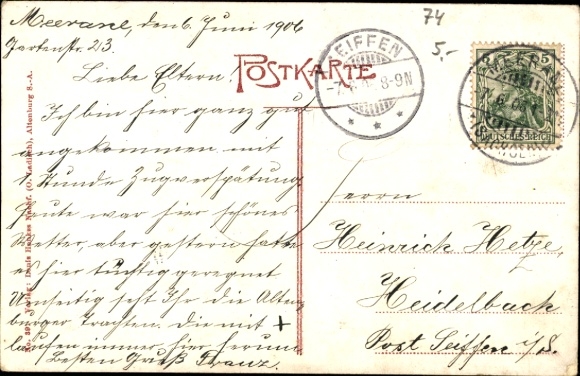 Meerane, den 6. Juni 1906
Gartenstr. 23.
Liebe Eltern!
Ich bin hier ganz gut
angekommen mit
1 Stunde Zugverspätung
Heute war hier schönes
Wetter, aber gestern hatte
es hier tüchtig geregnet
seht Ihr die Alten-
burger Trachten. Die mit +
laufen immer hier herum
Besten Gruß Franz.
POSTKARTE
SEIFFEN
8-9N
74
5.-
5
DEUTSCHES REICH
Herrn
Heinrich Hetze,
Heidelbach
Post Seiffen i/S.
Verlag: Denis Hachf. (O. Ladisch), Altenburg S.-A.